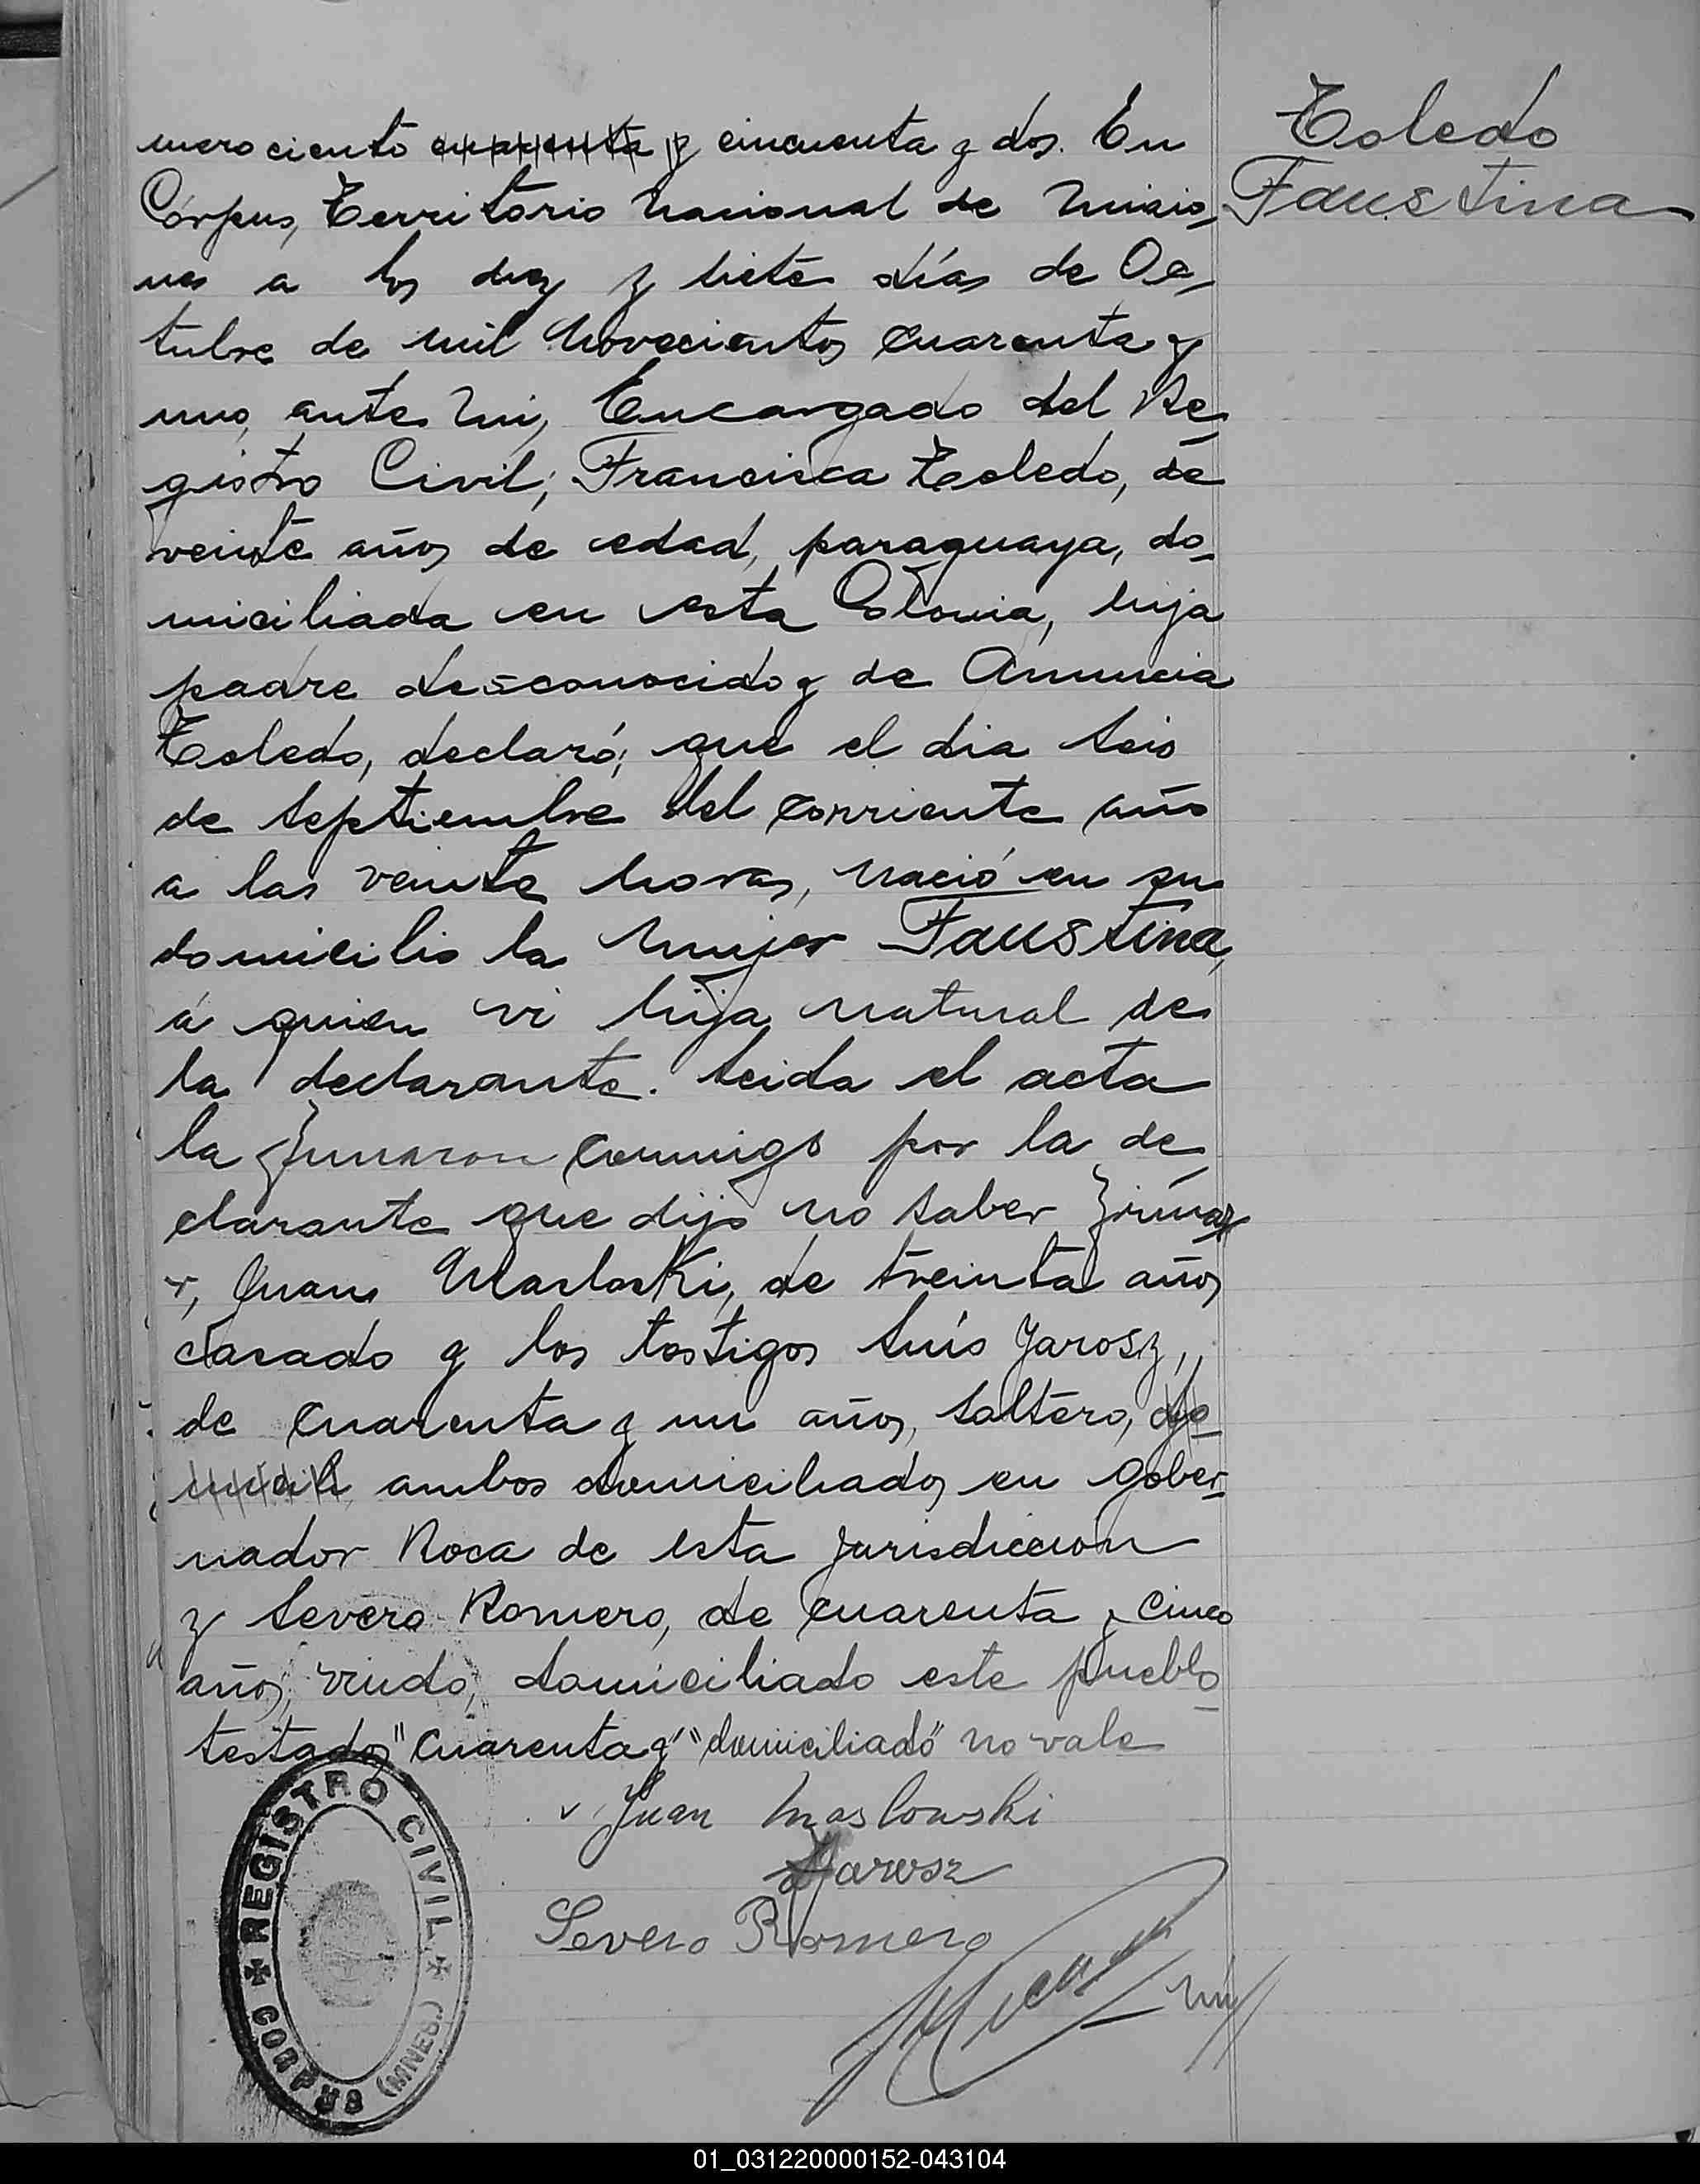 Toledo
Faustina
mero ciento cuarenta y cincuenta y dos. En
Córpus, Territorio Nacional de Misio,
nes a los diez y siete días de Oc,
tubre de mil novecientos cuarenta y
uno, ante mi, Encargado del Re,
gistro Civil; Francisca Toledo, de
veinte años de edad, paraguaya, do,
miciliada en esta Colonia, hija
padre desconocido y de Anuncia
Toledo, declaró; que el dia seis
de septiembre del corriente año
a las veinte horas, nació en su
domicilio la mujer Faustina,
á quien vi hija natural de
la declarante. Leida el acta
la firmaron conmigo por la de,
clarante que dijo no saber firmar
r, Juan Masloski, de treinta años
casado y los testigos Luis Jarosz,,
de cuarenta y un años, soltero, do
micili ambos domiciliados en gober,
nador Roca de esta jurisdiccion
y Severo Romero, de cuarenta y cinco
años, viudo, domiciliado este pueblo
testados "cuarenta y" "domiciliado" no vale
Juan Maslowski
Jarosz
Severo Romero
REGISTRO CIVIL
CORPUS (MNES.)
01_031220000152-043104